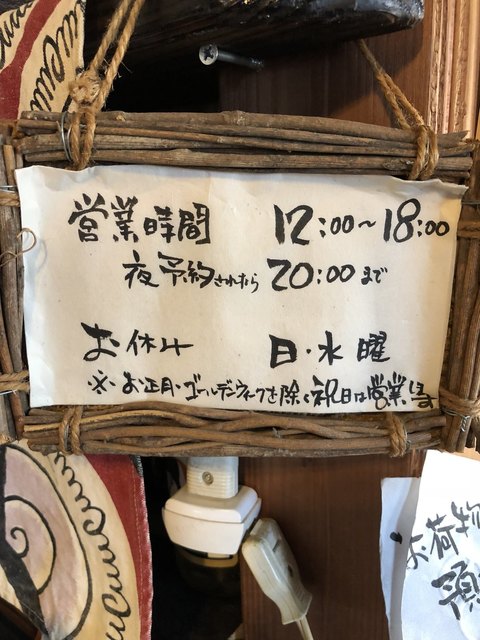 営業時間 12:00〜18:00
夜予約されたら 20:00まで
お休み 日・水曜
※・お正月・ゴールデンウィークを除く祝日は営業します
お荷物
預